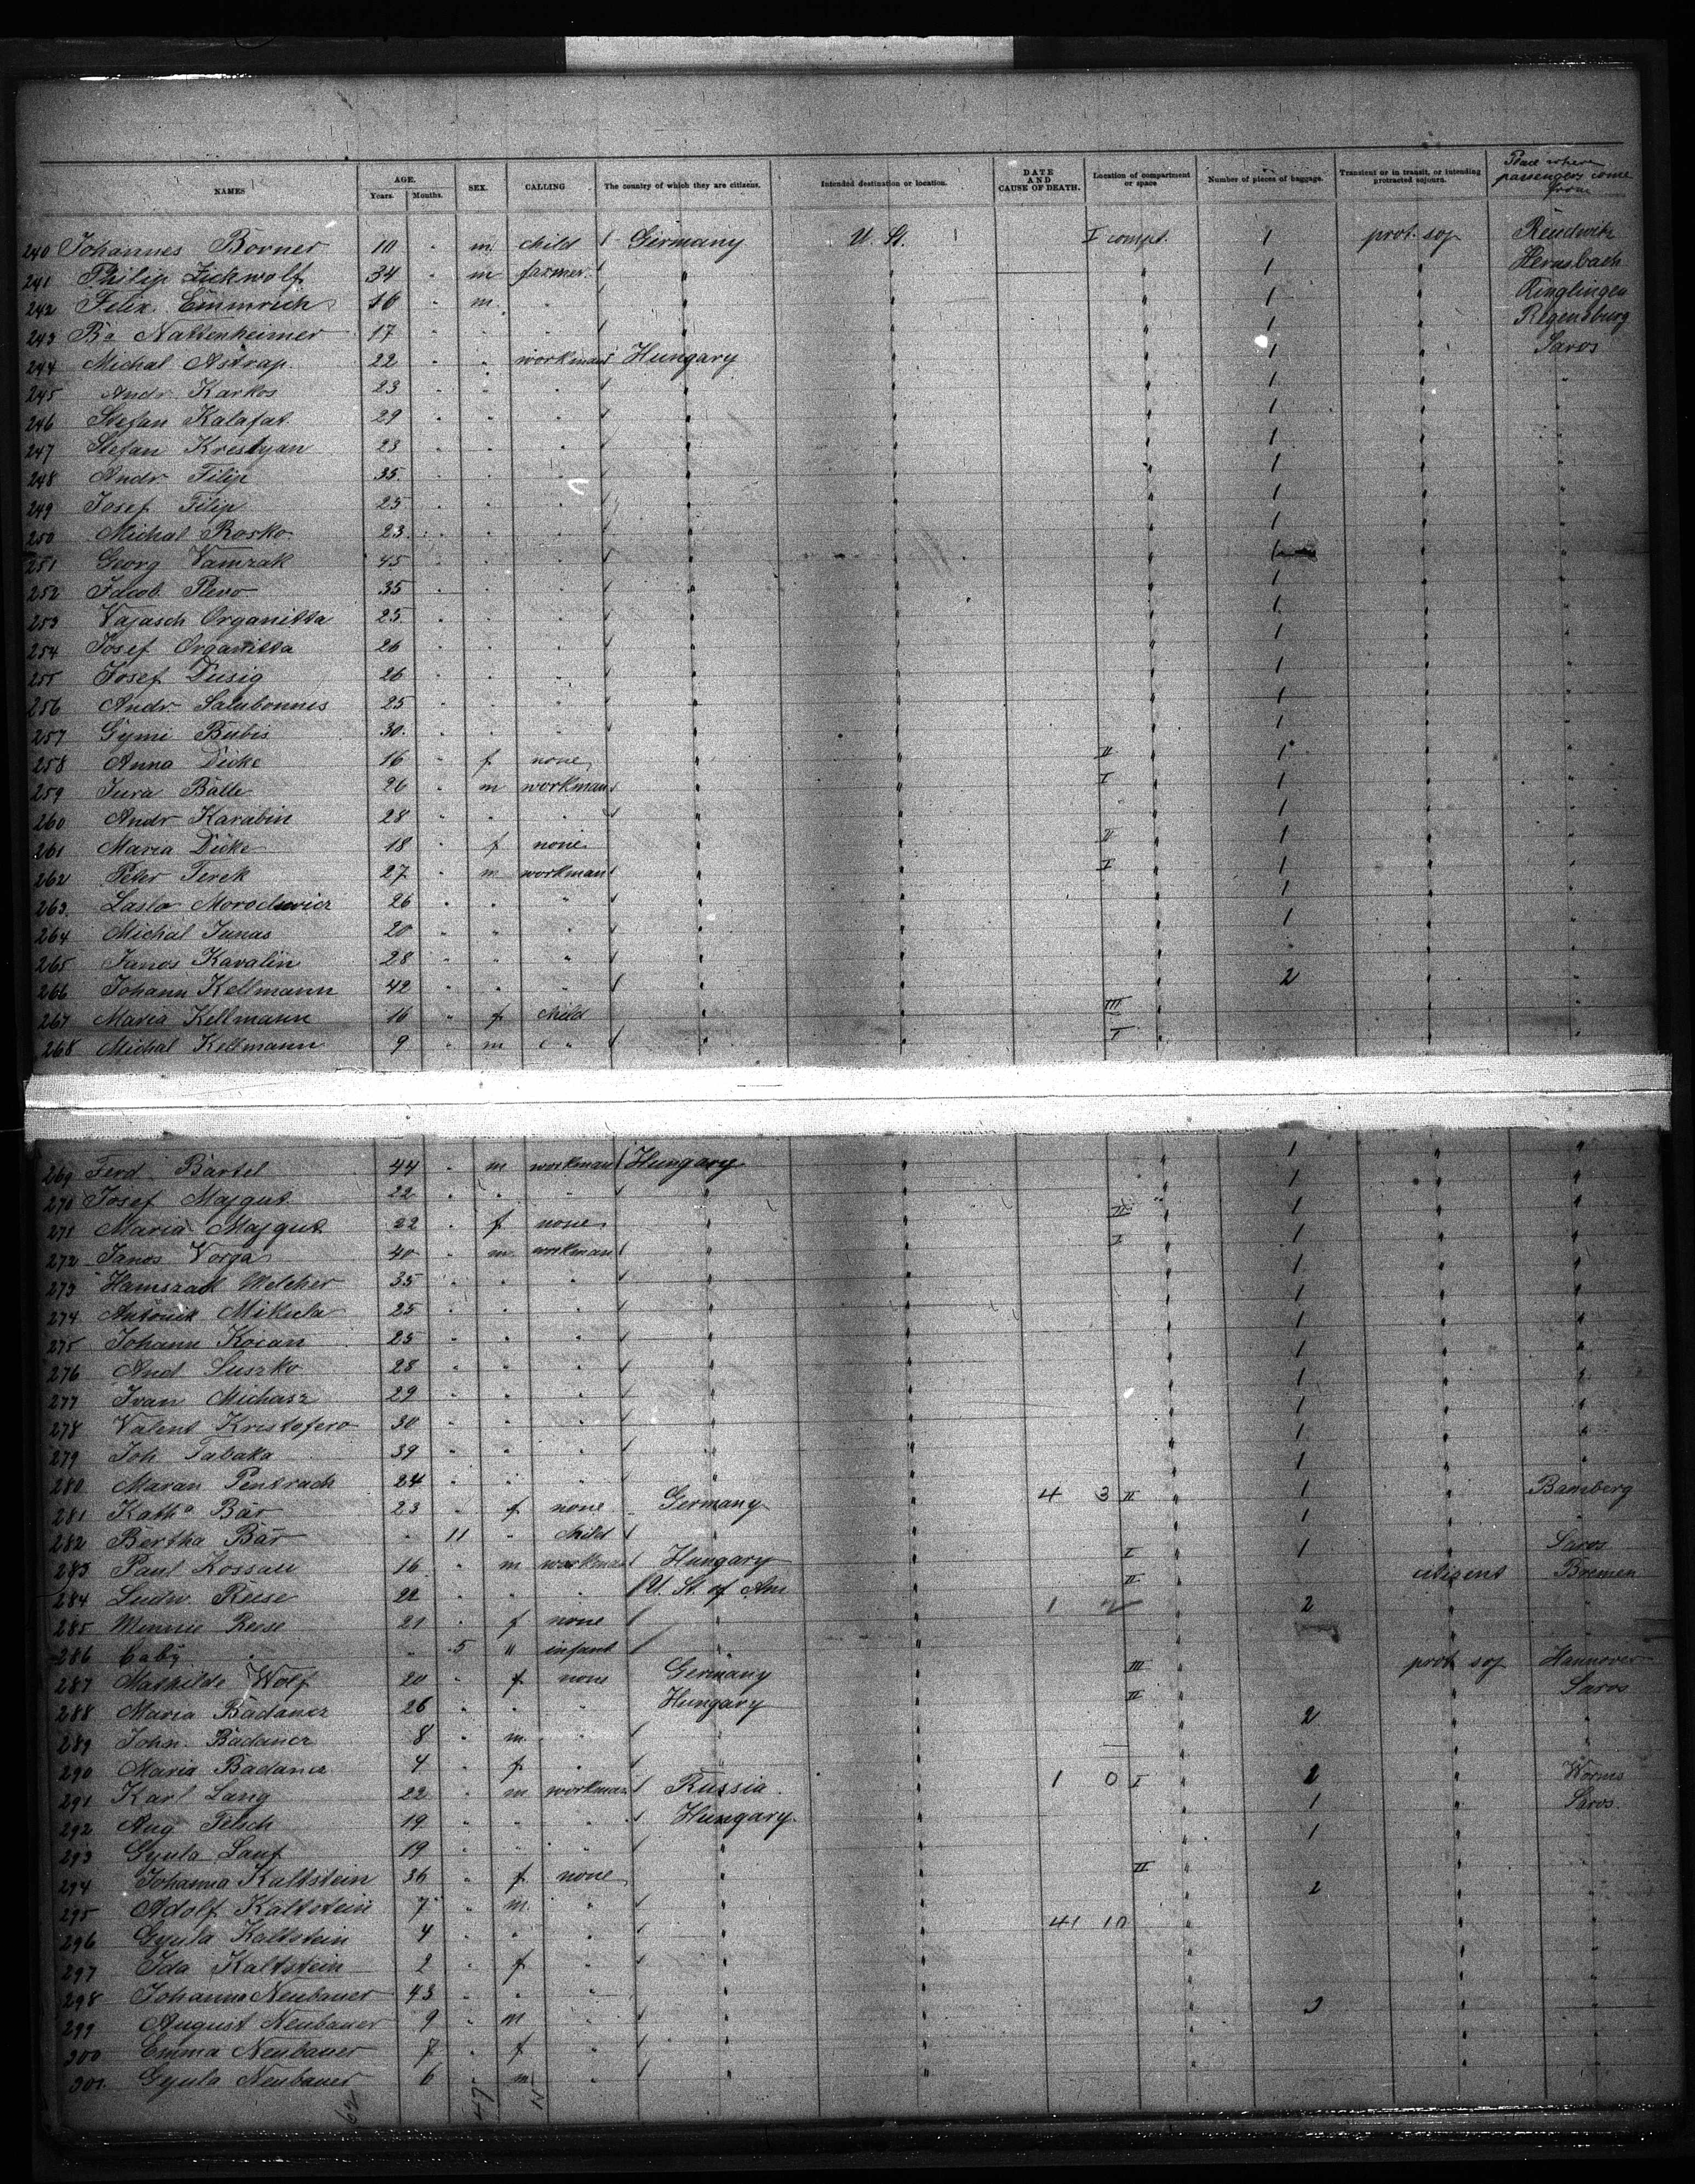 NAMES AGE. Years. Months. SEX. CALLING The country of which they are citizens. Intended destination or location. DATE AND CAUSE OF DEATH. Location of compartment or space Number of pieces of baggage. Transient or in transit, or intending protracted sojourn. Place where passengers come from
240 Johannes Börner 10 " m child Germany U. St. I compt. 1 prot. soj.
241 Philip Zickwolf 34 " m farmer " " " 1 " Hemsbach
242 Felix Emmrich 16 " m " " " " 1 "
243 Ba Nattenheimer 17 " " " " " " 1 " Regensburg
244 Michal Astrap 22 " " workman Hungary " " 1 " Saros
245 Andr. Karkos 23 " " " " " " 1 " "
246 Stefan Kalafat 29 " " " " " " 1 " "
247 Stefan Krestyan 23 " " " " " " 1 " "
248 Andr Filip 35 " " " " " " 1 " "
249 Josef Filip 25 " " " " " " 1 " "
250 Michal Rosko 23 " " " " " " 1 " "
251 Georg Vamzak 45 " " " " " " 1 " "
252 Jacob Plevo 35 " " " " " " 1 " "
253 Vajasch Organitta 25 " " " " " " 1 " "
254 Josef Organitta 26 " " " " " " 1 " "
255 Josef Dusig 26 " " " " " " 1 " "
256 Andr. Salubonnis 25 " " " " " " 1 " "
257 Gymi Bubis 30 " " " " " " 1 " "
258 Anna Dicke 16 " f none " " II " 1 " "
259 Jura Bälle 26 " m workman " " I " 1 " "
260 Andr Karabin 28 " " " " " " 1 " "
261 Maria Dicke 18 " f none " " II " 1 " "
262 Peter Terek 27 " m workman " " I " 1 " "
263 Laslo 26 " " " " " " 1 " "
264 Michal Junas 20 " " " " " " 1 " "
265 Janos Kavalin 28 " " " " " " " "
266 Johann Kellmann 42 " " " " " " 2 " "
267 Maria Kellmann 16 " f child " " III " " "
268 Michal Kellmann 9 " m " " " I " " "
269 Ferd. Bartel 44 " m workman Hungary " " 1 " "
270 Josef Majgut 22 " " " " " " 1 " "
271 Maria Majgut 22 " f none " " II " 1 " "
272 Janos Vorga 40 " m workman " " I " 1 " "
273 Hamszad Melcher 35 " " " " " " 1 " "
274 Antonik Mikula 25 " " " " " " 1 " "
275 Johann Kocan 25 " " " " " " 1 " "
276 And Suszko 28 " " " " " " 1 " "
277 Ivan Michasz 29 " " " " " " 1 " "
278 Valent Kristofero 30 " " " " " " 1 " "
279 Joh Tabaka 39 " " " " " " 1 " "
280 Maran 24 " " " " " " 1 " "
281 Katha Bär 23 " f none Germany " 4 3 II " 1 " Bamberg
282 Bertha Bär " 11 " child " " " 1 " "
283 Paul Kossau 16 " m workman Hungary " I " 1 " Saros
284 Ludw. Reese 22 " " " U. St. of Am " II " citizent Bremen
285 Minnie Reese 21 " f none " " 1 2 " 2 " "
286 baby " 5 " infant " " " " "
287 Mathilde Wolf 20 " f none Germany " III " prot soj Hannover
288 Maria Badancz 26 " " " Hungary " II " " Saros
289 John. Badancz 8 " m " " " " 2 " "
290 Maria Badancz 4 " f " " " " " "
291 Karl Lang 22 " m workman Russia " 1 0 I " 2 " Worms
292 Aug Fetsch 19 " " " Hungary " " 1 " Saros
293 Gyula Lauf 19 " " " " " " 1 " "
294 Johanna Kaltstein 36 " f none " " II " " "
295 Adolf Kaltstein 7 " m " " " " 2 " "
296 Gyula Kaltstein 4 " " " " " 41 10 " " "
297 Ida Kaltstein 2 " f " " " " " "
298 Johanna Neubauer 43 " " " " " " " "
299 August Neubauer 9 " m " " " " 3 " "
300 Emma Neubauer 7 " f " " " " " "
301 Gyula Neubauer 6 " m " " " " " "
62